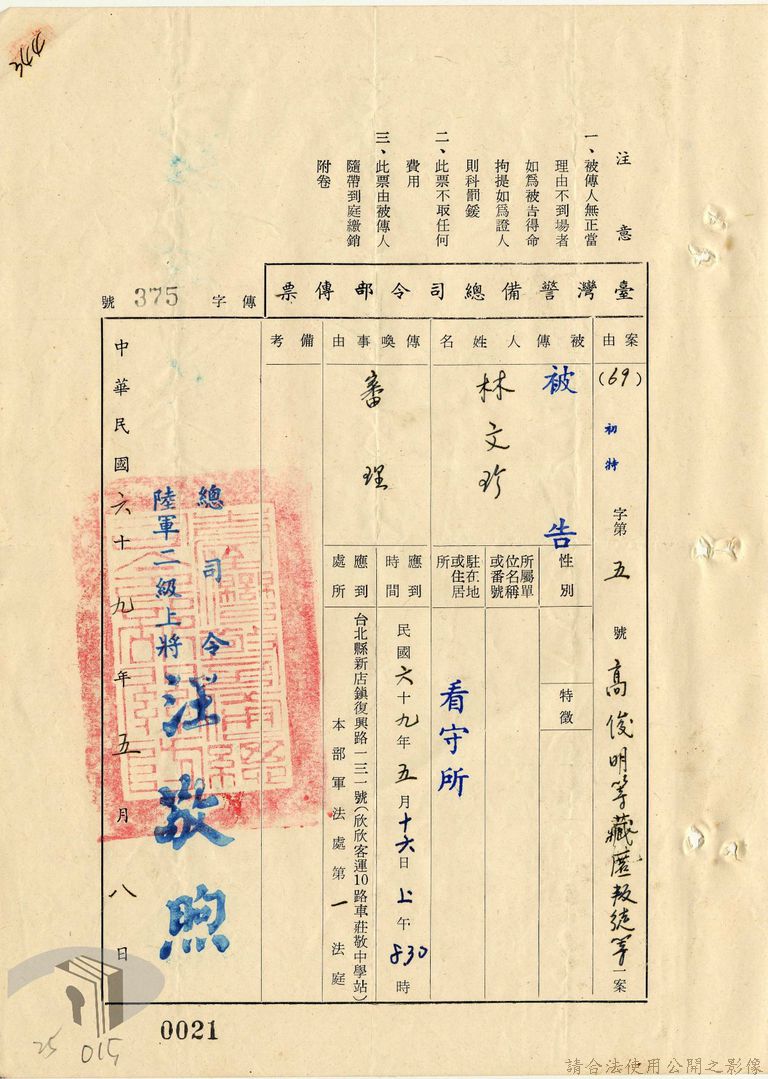 344
注意
一、被傳人無正當
理由不到場者
如爲被告得命
拘提如爲證人
則科罰鍰
二、此票不取任何
費用
三、此票由被傳人
隨帶到庭繳銷
附卷
臺灣警備總司令部傳票
傳字375號
案由
(69)初特字第五號高俊明等藏匿叛徒等一案
被傳人姓名
被告
林文珍
性別
特徵
所屬單位名稱或番號
駐在地或住居所
看守所
傳喚事由
審理
應到時間
民國六十九年五月十六日上午830時
應到處所
台北縣新店鎮復興路一三一號(欣欣客運10路車莊敬中學站)
本部軍法處第一法庭
備考
總司令
陸軍二級上將汪敬煦
中華民國六十九年五月八日
0021
25
015
請合法使用公開之影像